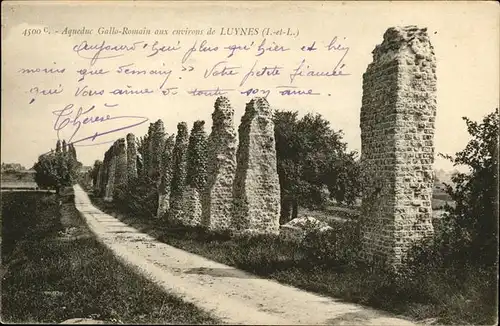 4500 C. - Aqueduc Gallo-Romain aux environs de LUYNES (I.-et-L.)
"aujourd'hui plus qu'hier et bien
moins que demain". Votre petite fiancée
qui vous aime de toute son âme.
Thérèse